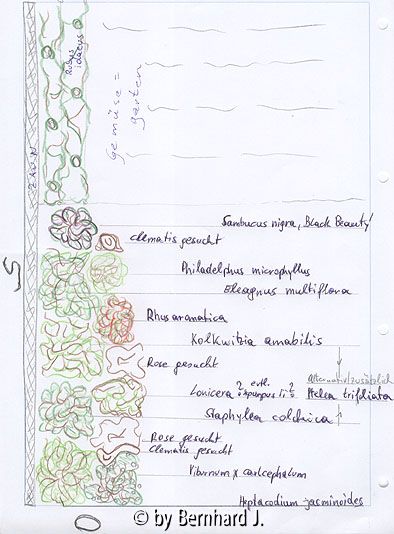 Rubus idaeus
Gemüse=
garten
ZAUN
Sambucus nigra, Black Beauty'
Clematis gesucht
Philadelphus microphyllus
Eleagnus multiflora
Rhus aromatica
Kolkwitzia amabilis
Alternativ/zusätzlich
Rose gesucht
Lonicera ? evtl. ?
Ptelea trifoliata
Staphylea colchica
R
Rose gesucht
Clematis gesucht
Viburnum x carlcephalum
Heptacodium jasminoides
S
O
© by Bernhard J.